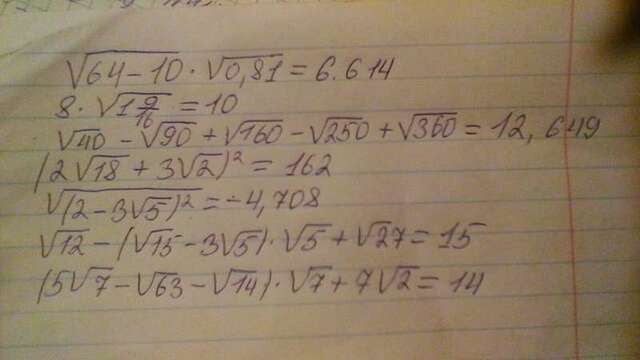 √64-10 · √0,81 = 6.614
8 · √1 9/16 = 10
√40 - √90 + √160 - √250 + √360 = 12,649
(2√18 + 3√2)² = 162
√(2-3√5)² = -4,708
√12 - (√15 - 3√5) · √5 + √27 = 15
(5√7 - √63 - √14) · √7 + 7√2 = 14